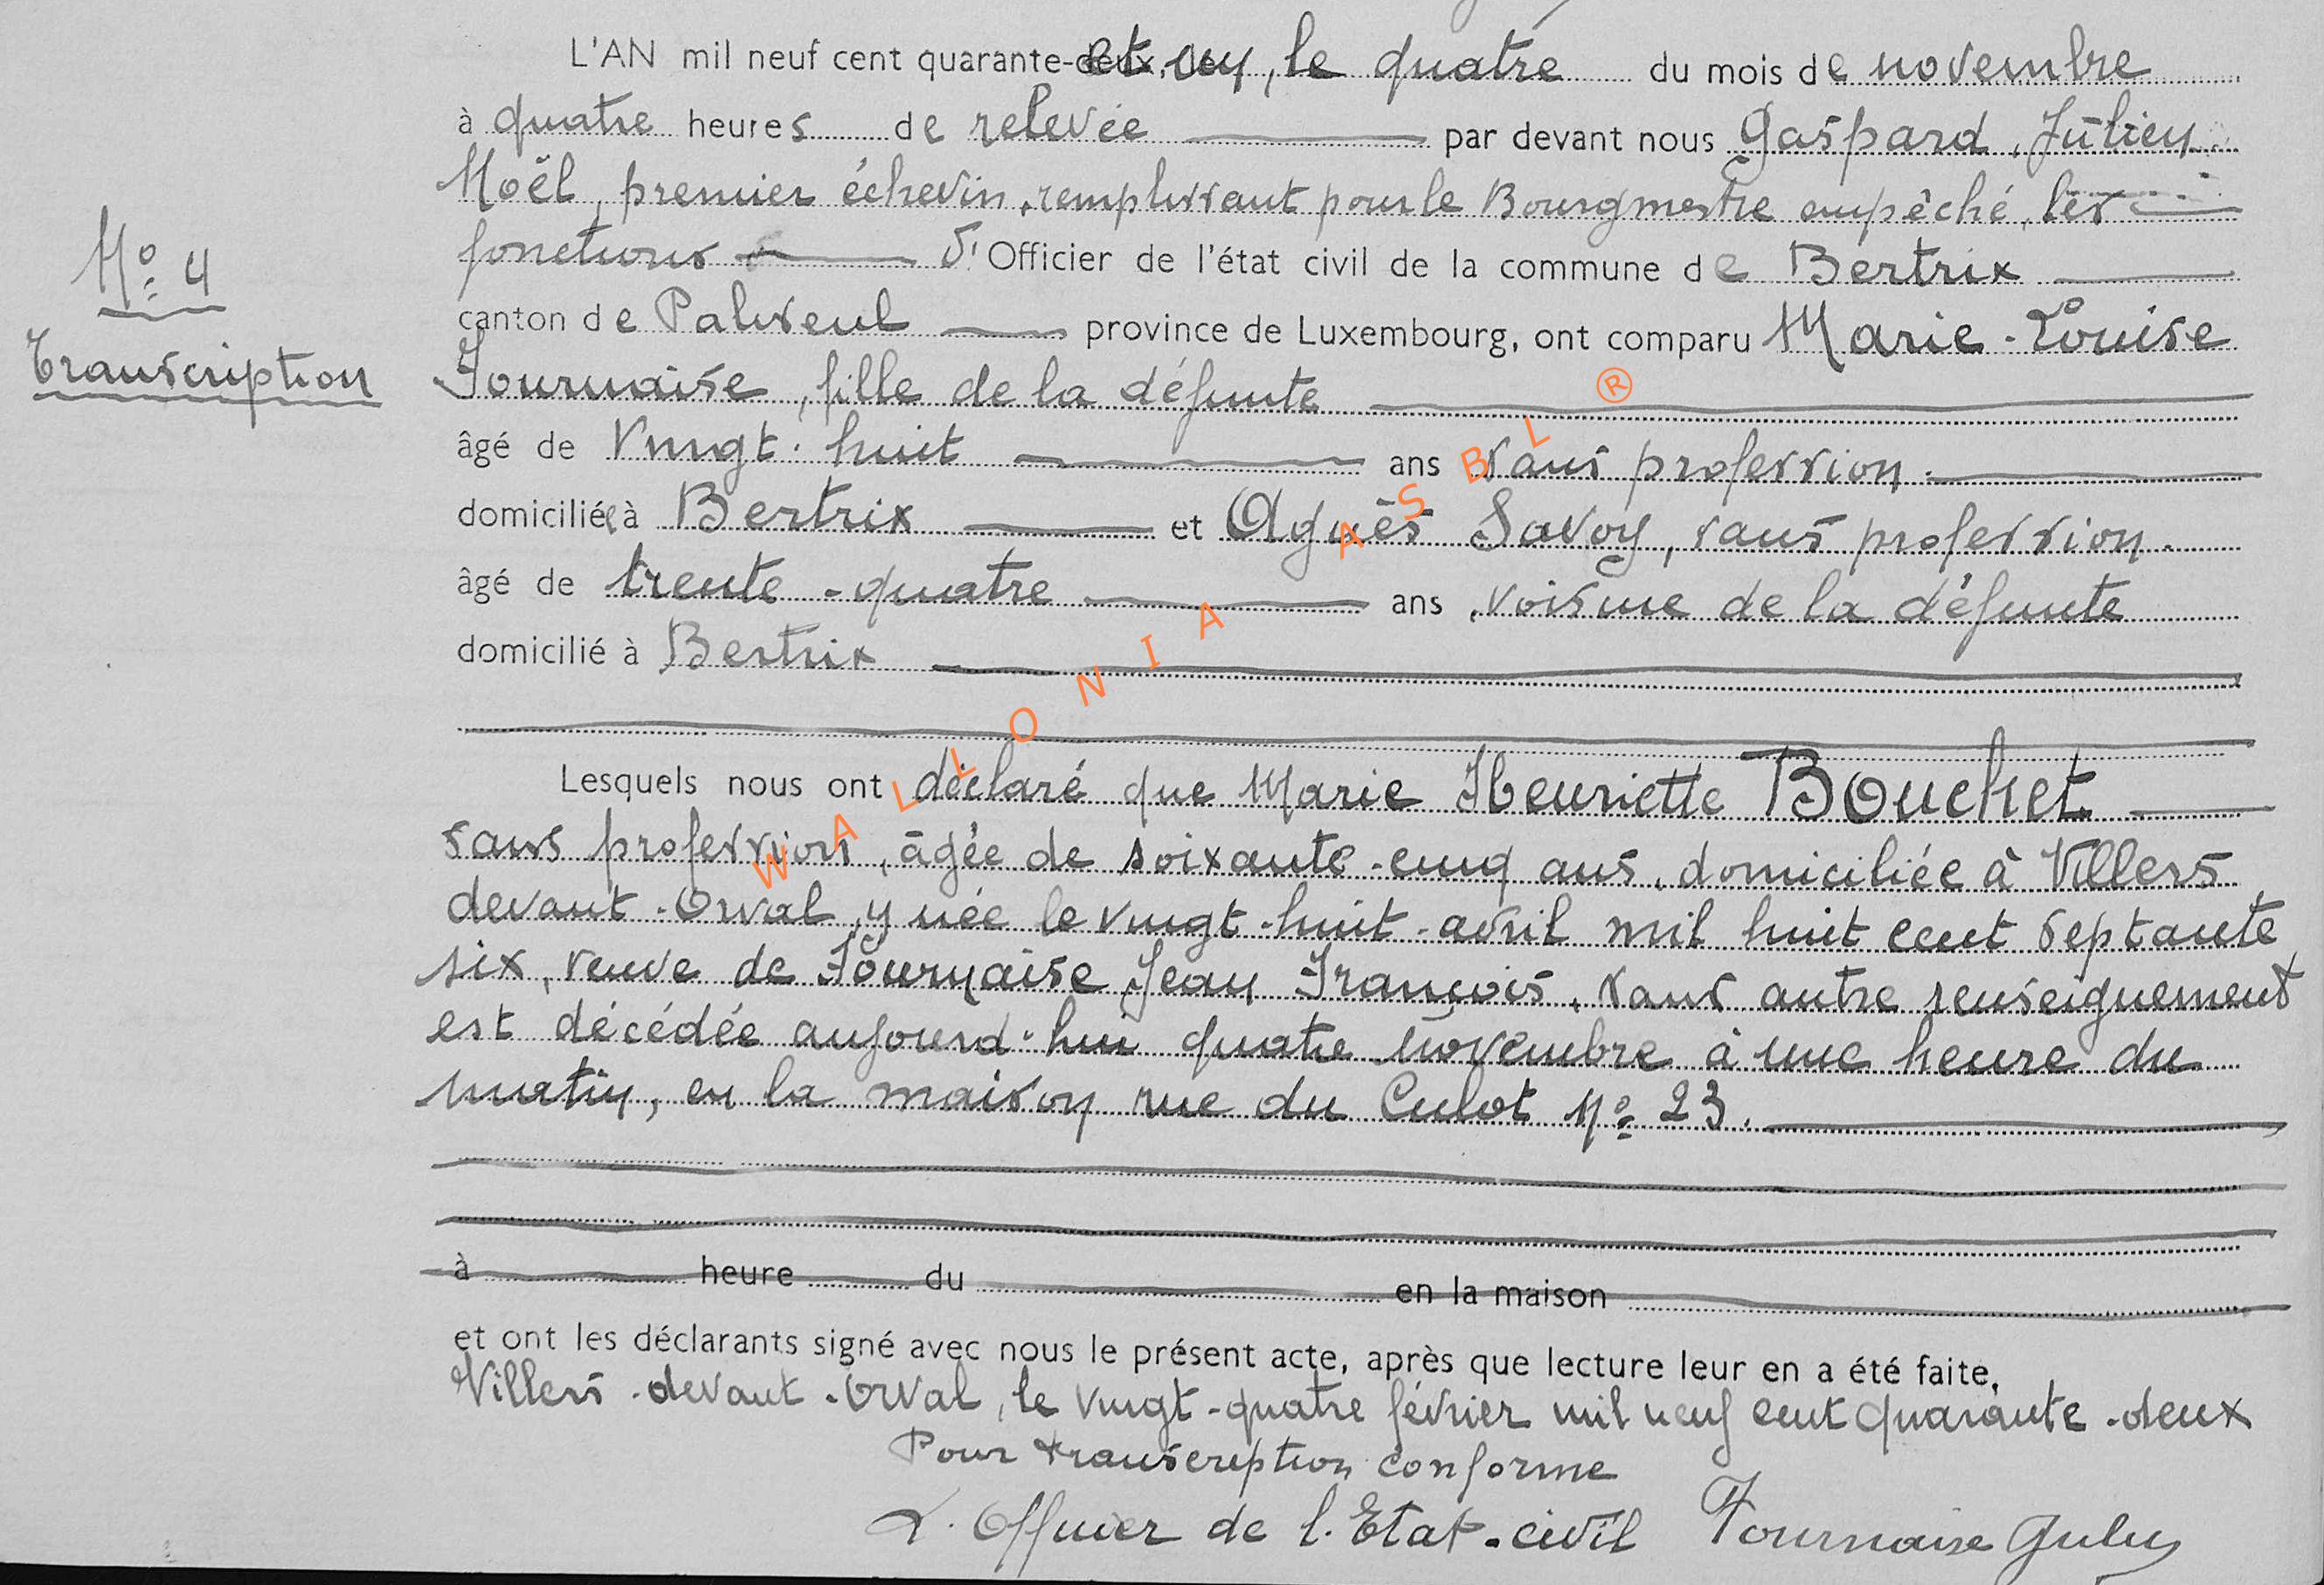 L'AN mil neuf cent quarante-et un, le quatre du mois de novembre
à quatre heures de relevée par devant nous Gaspard, Julien
Noël, premier échevin, remplissant pour le Bourgmestre empêché, les
fonctions d'Officier de l'état civil de la commune de Bertrix
N° 4
canton de Paliseul province de Luxembourg, ont comparu Marie-Louise
Transcription
Fournaise, fille de la défunte
âgé de vingt-huit ans sans profession.
domiciliée à Bertrix et Agnès Savoy, sans profession.
âgé de trente-quatre ans, voisine de la défunte
domicilié à Bertrix
Lesquels nous ont déclaré que Marie Henriette Bouchet
sans profession, âgée de soixante-cinq ans, domiciliée à Villers
devant-Orval, y née le vingt-huit-avril mil huit cent septante
six, veuve de Fournaise Jean François, sans autre renseignement
est décédée aujourd'hui quatre novembre à une heure du
matin, en la maison rue du Culot N° 23.
à heure du en la maison
et ont les déclarants signé avec nous le présent acte, après que lecture leur en a été faite.
Villers-devant-Orval, le vingt-quatre février mil neuf cent quarante-deux
Pour transcription conforme
L'Officier de l'Etat-civil Fournaise Jules
WALLONIA ASBL ®